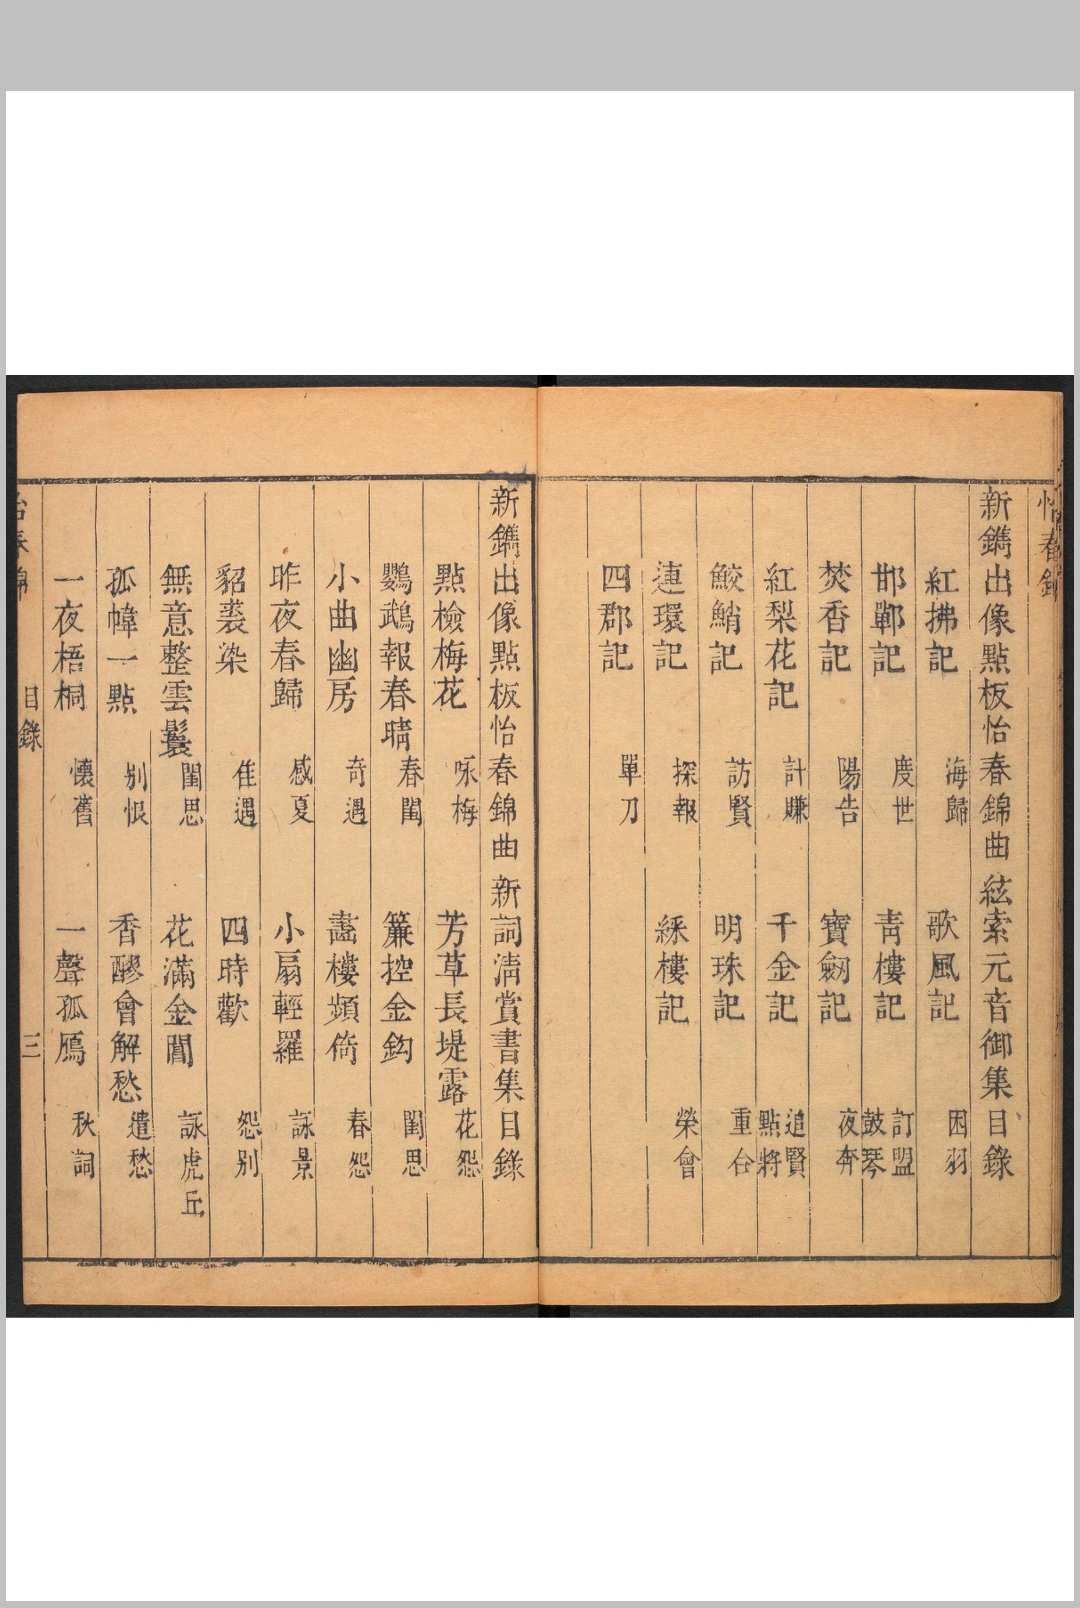 怡春錦
新鐫出像點板怡春錦曲 絃索元音御集目錄
紅拂記 海歸 歌風記 困羽
邯鄲記 度世 青樓記 訂盟 鼓琴
焚香記 陽告 寶劒記 夜奔
紅梨花記 計賺 千金記 追賢 點將
鮫鮹記 訪賢 明珠記 重合
連環記 探報 綵樓記 榮會
四郡記 單刀
新鐫出像點板怡春錦曲 新詞清賞書集目錄
點檢梅花 咏梅 芳草長堤露 花怨
鸚鵡報春晴 春閨 簾控金鈎 閨思
小曲幽房 奇遇 畵樓頻倚 春怨
昨夜春歸 感夏 小扇輕羅 詠景
貂裘染 隹遇 四時歡 怨别
無意整雲鬟 閨思 花滿金閶 詠虎丘
孤幃一點 别恨 香醪會解愁 遣愁
一夜梧桐 懷舊 一聲孤鴈 秋詞
怡春錦 目錄 三